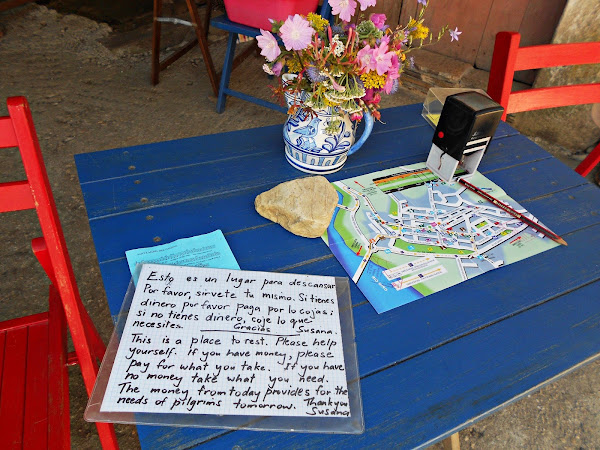 Esto es un lugar para descansar
Por favor, sirvete tu mismo. Si tienes
dinero por favor paga por lo cojas;
si no tienes dinero, coje lo que
necesites. Gracias Susana.
This is a place to rest. Please help
yourself. If you have money, please
pay for what you take. If you have
no money take what you need.
The money from today provides for the
needs of pilgrims tomorrow. Thank you
Susana